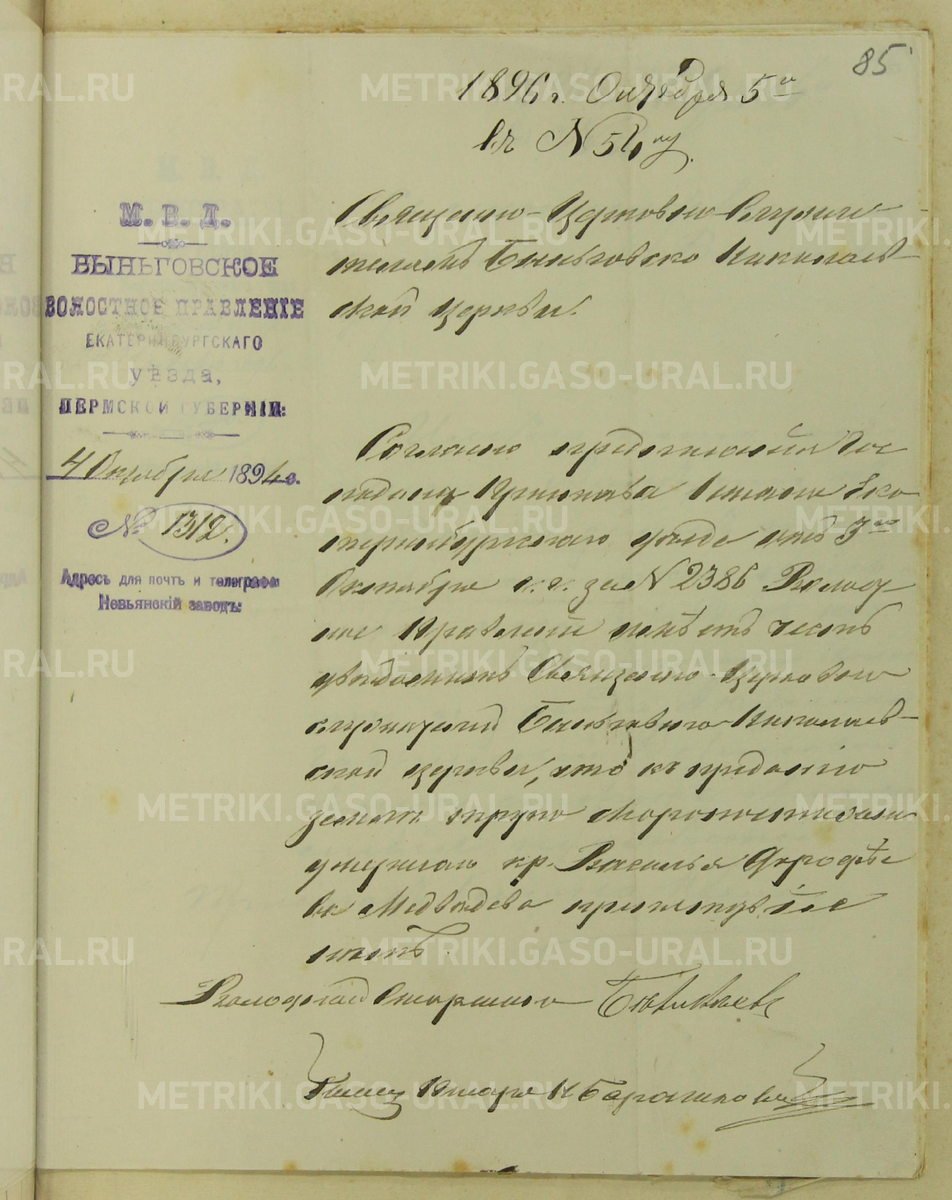 85
1896 г. Октября 5го
вх № 54му
М. В. Д.
БЫНЬГОВСКОЕ
ВОЛОСТНОЕ ПРАВЛЕНІЕ
ЕКАТЕРИНБУРГСКАГО
УѢЗДА,
ПЕРМСКОЙ ГУБЕРНІИ:
4 Октября 1896 г.
№ 1312.
Адресъ для почт и телеграмм
Невьянскій заводъ:
Священно-Церковно-Служи-
телямъ Быньговско Николаев-
ской церкви.
Согласно предписанія Гос-
подина Пристава Екa-
теринбургскаго уѣзда отъ 3го
Октября с. г. за № 2386 Волост-
ное Правленіе имѣетъ честь
увѣдомить Священно-Церковно
служителей Быньговско-Николаев-
ской церкви, что къ преданію
землѣ трупа скоропостижно
умершаго кр. Василья Дорофѣе
ва Медвѣдева препятствіе
нѣтъ.
Волостной Старшина
Писарь И Барашковъ
METRIKI.GASO-URAL.RU